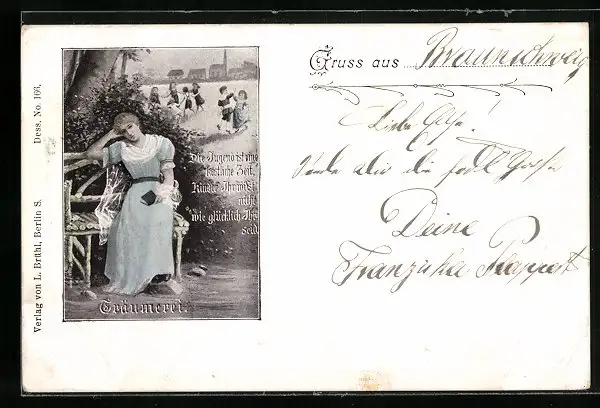 Verlag von L. Brühl, Berlin S. Dess. No. 166.
Die Jugend ist eine
köstliche Zeit,
Kinder Ihr wißt
nicht
wie glücklich Ihr
seid.
Träumerei
Gruss aus Braunschweig
Liebe
Sende Dir die
Deine
Franziska Flappert